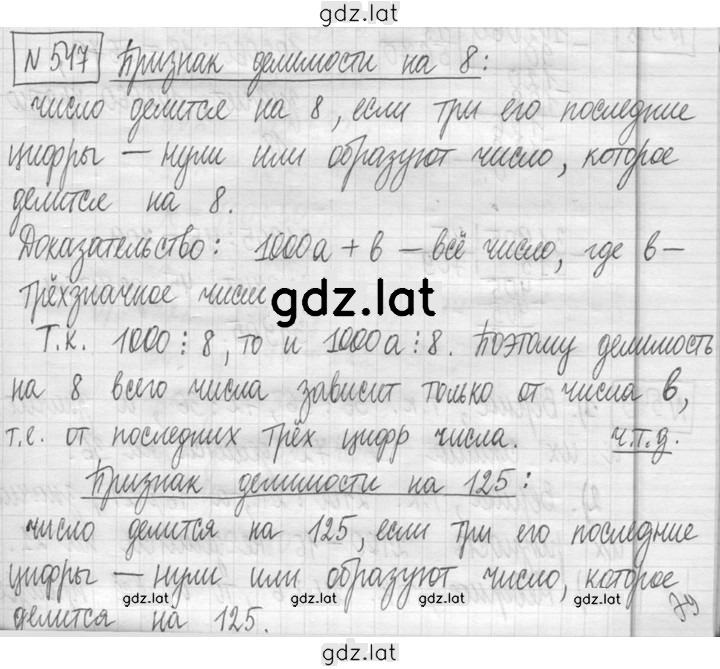 gdz.lat
№547 Признак делимости на 8:
число делится на 8, если три его последние
цифры — нули или образуют число, которое
делится на 8.
Доказательство: 1000а + в — всё число, где в —
трёхзначное число
gdz.lat
Т.к. 1000 ⋮ 8, то и 1000а ⋮ 8. Поэтому делимость
на 8 всего числа зависит только от числа в,
т.е. от последних трёх цифр числа. ч.т.д.
Признак делимости на 125:
число делится на 125, если три его последние
цифры — нули или образуют число, которое
gdz.lat gdz.lat gdz.lat
делится на 125.
79
gdz.lat